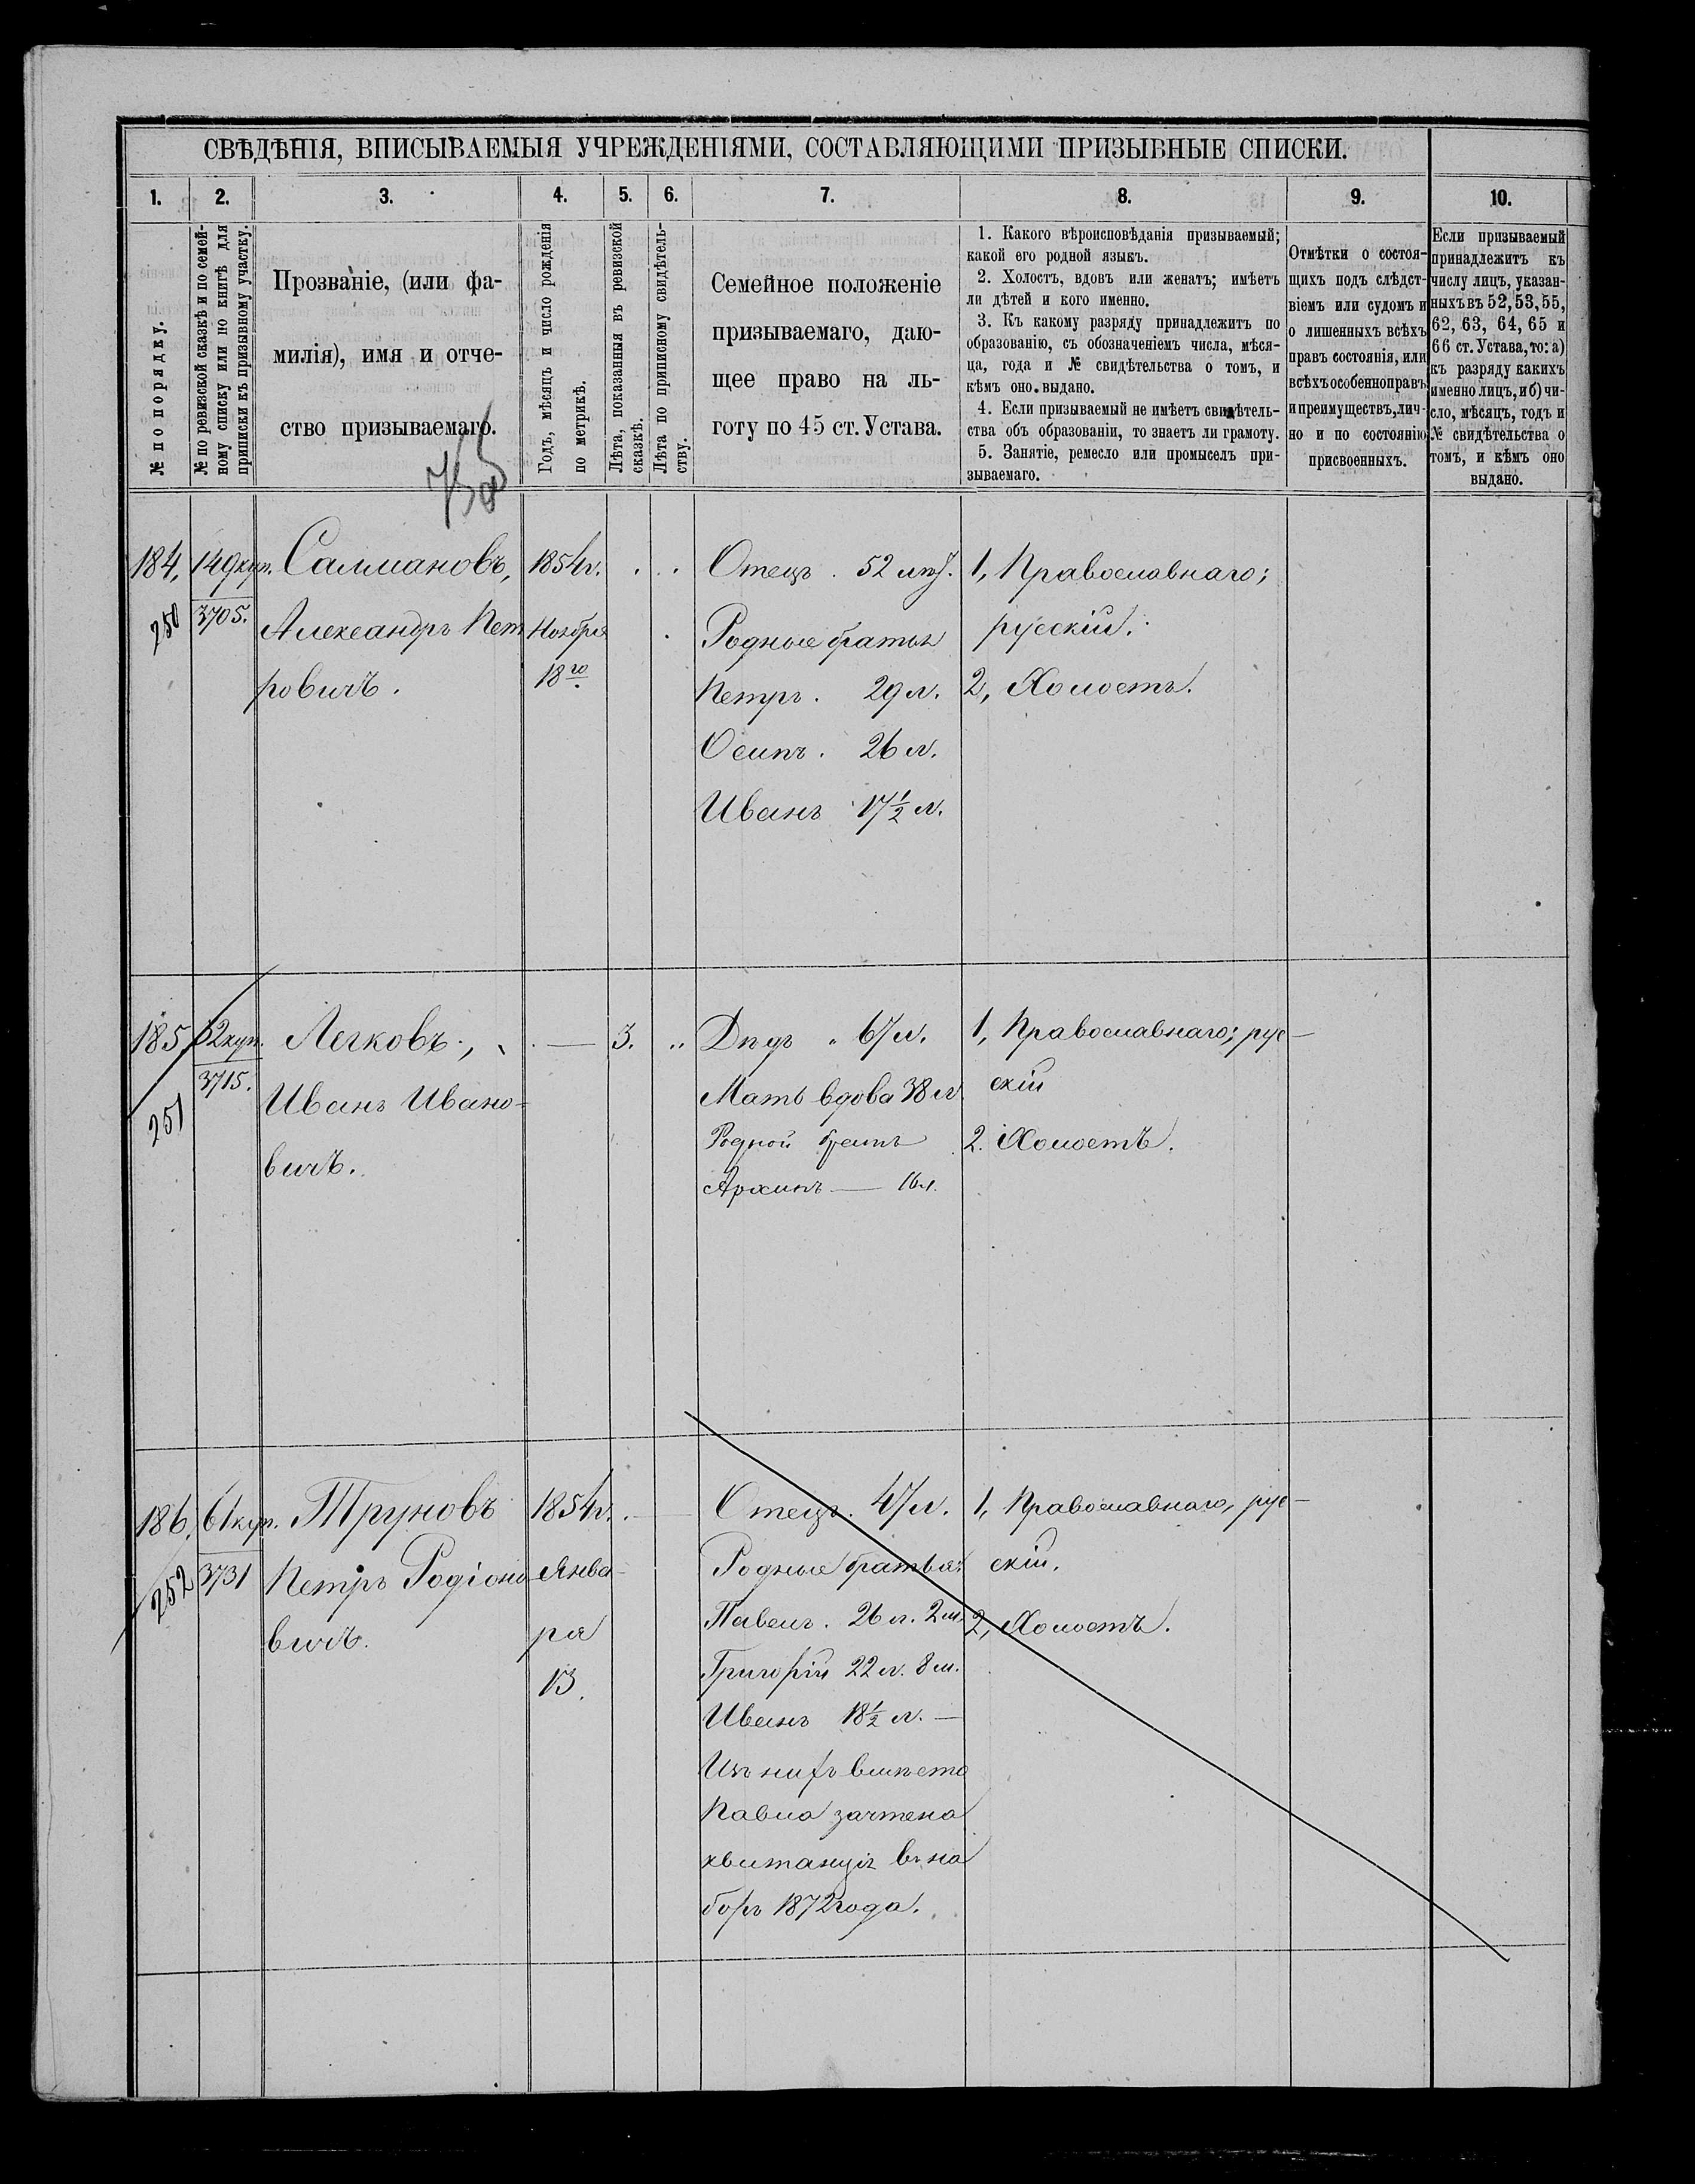 СВѢДѢНІЯ, ВПИСЫВАЕМЫЯ УЧРЕЖДЕНІЯМИ, СОСТАВЛЯЮЩИМИ ПРИЗЫВНЫЕ СПИСКИ.
1. 2. 3. 4. 5. 6. 7. 8. 9. 10.
№ по порядку.
№ по ревизской сказкѣ и по семей-
ному списку или по книгѣ для
приписки къ призывному участку.
Прозваніе, (или фа-
милія), имя и отче-
ство призываемаго.
Годъ, мѣсяцъ и число рожденія
по метрикѣ.
Лѣта, показанныя въ ревизской
сказкѣ.
Лѣта по приписному свидѣтель-
ству.
Семейное положеніе
призываемаго, даю-
щее право на ль-
готу по 45 ст. Устава.
1. Какого вѣроисповѣданія призываемый;
какой его родной языкъ.
2. Холостъ, вдовъ или женатъ; имѣетъ
ли дѣтей и кого именно.
3. Къ какому разряду принадлежитъ по
образованію, съ обозначеніемъ числа, мѣся-
ца, года и № свидѣтельства о томъ, и
кѣмъ оно выдано.
4. Если призываемый не имѣетъ свидѣтель-
ства объ образованіи, то знаетъ ли грамоту.
5. Занятіе, ремесло или промыселъ при-
зываемаго.
Отмѣтки о состоя-
щихъ подъ слѣдст-
віемъ или судомъ и
о лишенныхъ всѣхъ
правъ состоянія, или
всѣхъ особенно правъ
и преимуществъ, лич-
но и по состоянію
присвоенныхъ.
Если призываемый
принадлежитъ къ
числу лицъ, указан-
ныхъ въ 52, 53, 55,
62, 63, 64, 65 и
66 ст. Устава, то: а)
къ разряду какихъ
именно лицъ, и б) чи-
сло, мѣсяцъ, годъ и
№ свидѣтельства о
томъ, и кѣмъ оно
выдано.
184,
250
149 куп.
3705.
Салмановъ,
Александръ Пет
ровичъ.
1854 г.
Ноября
18го
Отецъ. 52 лѣт.
Родные братья
Петръ. 29 л.
Осипъ. 26 л.
Иванъ 17½ л.
1, Православнаго;
русскій.
2, Холостъ.
185,
251
52 куп.
3715.
Легковъ,
Иванъ Ивано-
вичъ.
3.
Дѣдъ " 67 л.
Мать вдова 38 л.
Родной братъ
Архипъ — 16 л.
1, Православнаго; рус-
скій
2. Холостъ.
186,
252
61 куп.
3731
Труновъ
Петръ Родіоно
вичъ.
1854 г.
Янва-
ря
13.
Отецъ. 47 л.
Родные братья:
Павелъ. 26 л. 2 м.
Григорій 22 л. 8 м.
Иванъ 18½ л. —
Изъ нихъ вмѣсто
Павла зачтена
квитанція въ на
боръ 1872 года.
1, Православнаго, рус-
скій.
2, Холостъ.